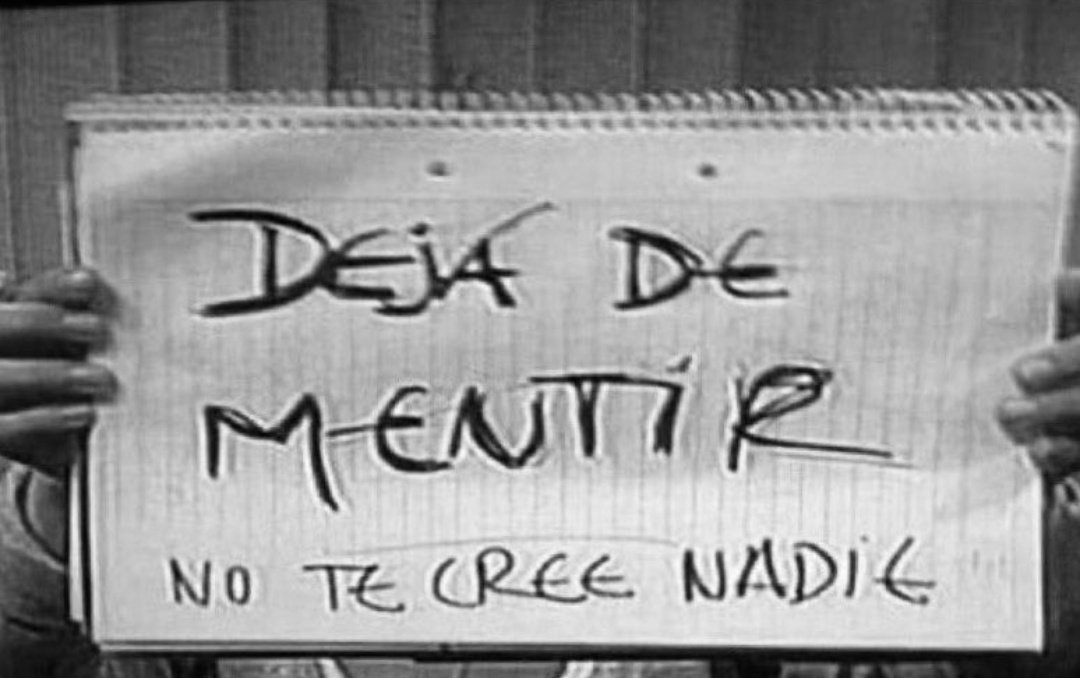 DEJÁ DE
MENTIR
NO TE CREE NADIE